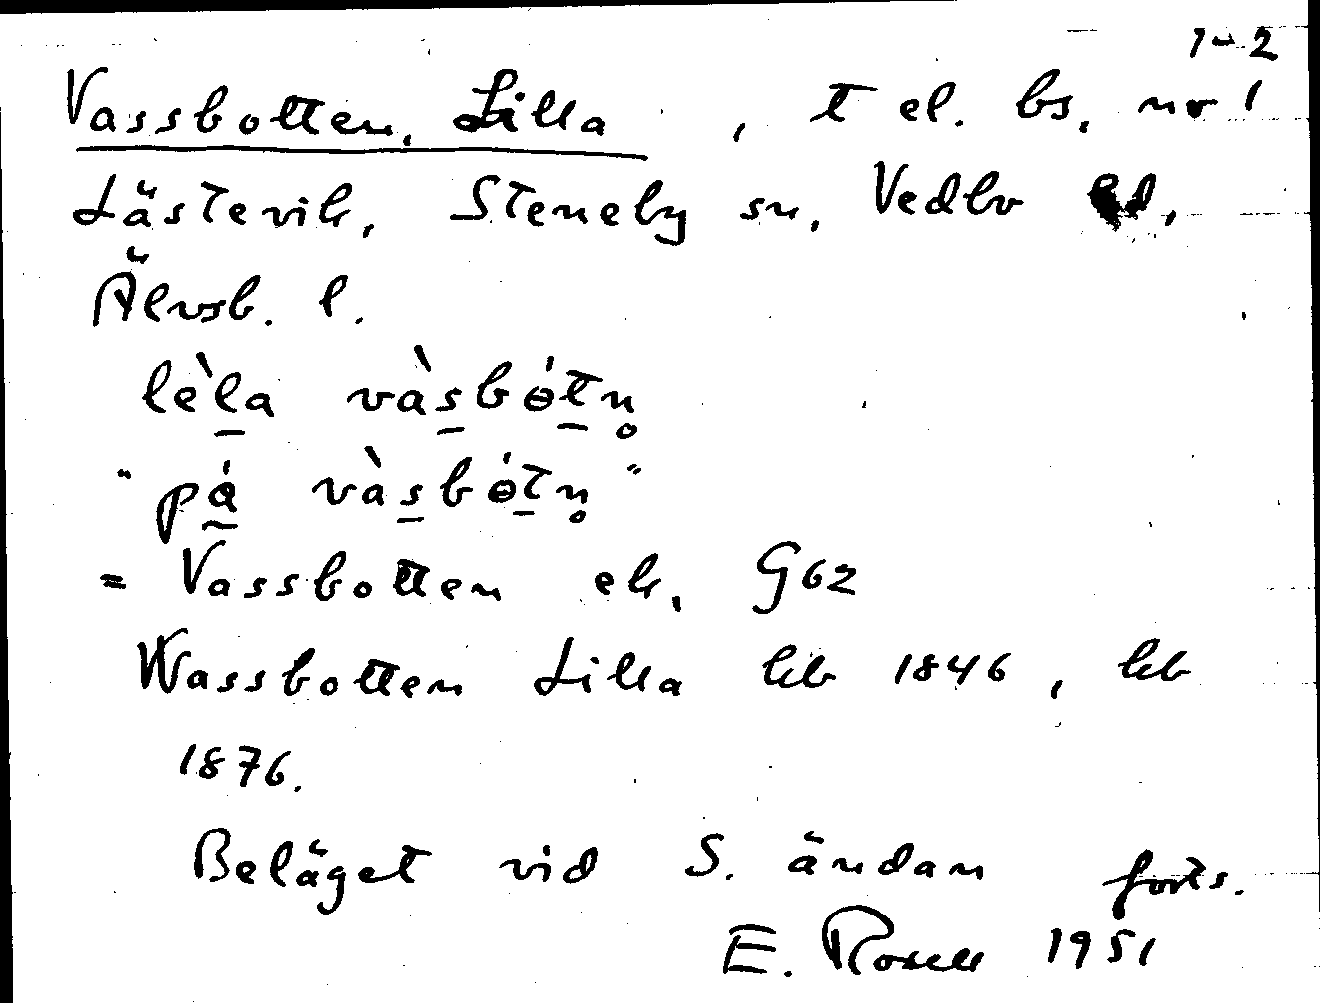 1-2
Vassbotten, Lilla , t el. bs, nr 1
Lästevik, Steneby sn, Vedbo hd,
Älvsb. l.
lèla vàsbótn̥
"på̀ vàsbótn̥"
= Vassbotten ek, G62
Wassbotten Lilla kb 1846, kb
1876.
Beläget vid S. ändan forts.
E. Rosell 1951